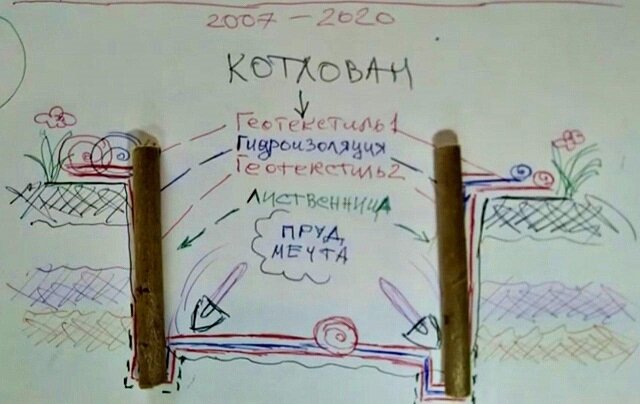 2007 - 2020
КОТЛОВАН
Геотекстиль1
Гидроизоляция
Геотекстиль2
Лиственница
ПРУД
МЕЧТА